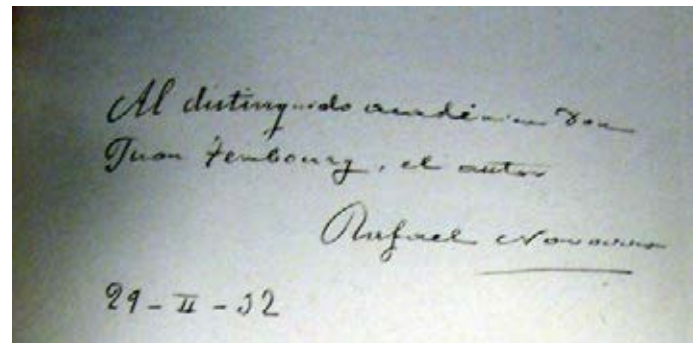 Al distinguido académico Don
Juan Temboury, el autor
Rafael Navarro
29-II-32